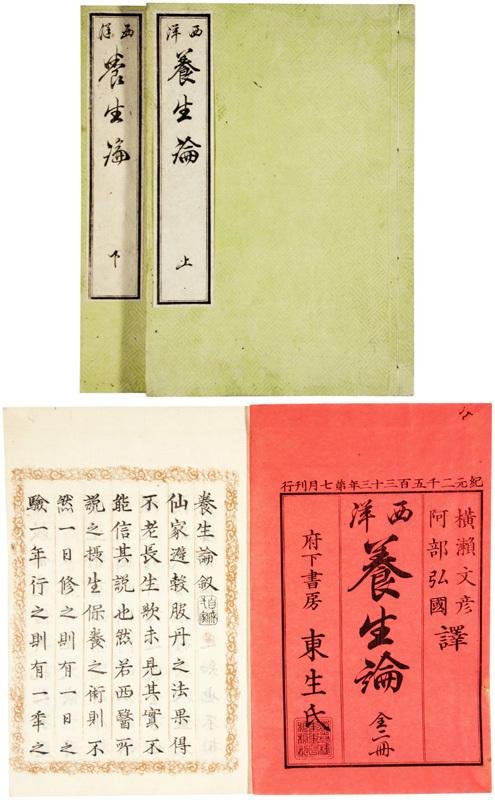 西洋
養生論
上
西洋
養生論
下
紀元二千五百三十三年第七月刊行
橫瀨文彦
阿部弘國
譯
西洋
養生論
全二冊
府下書房
東生氏
養生論叙
仙家避穀服丹之法果得
不老長生歟未見其實不
能信其説也然若西醫所
説之攝生保養之術則不
然一日修之則有一日之
驗一年行之則有一秊之